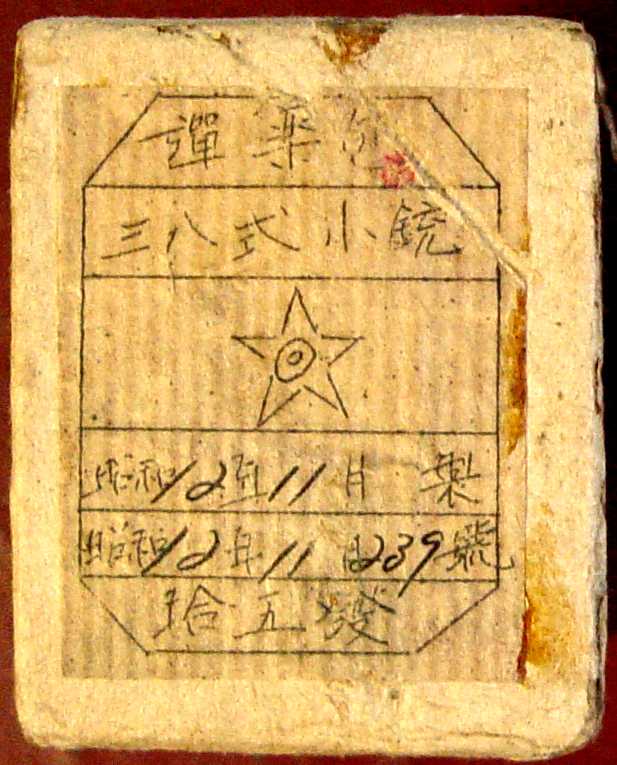 彈藥包
三八式小銃
昭和12年11月 製
昭和12年11月239號
拾五發